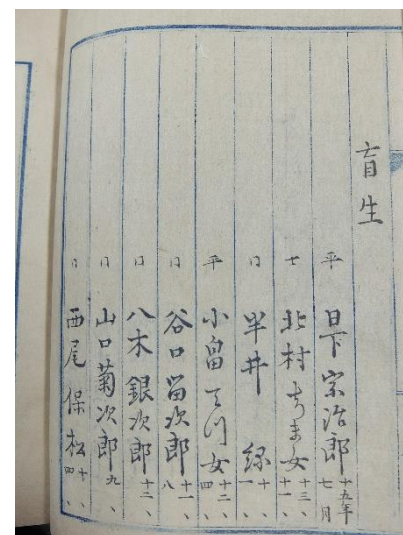 盲生
平 日下宗治郎 十九年七月
士 北村ちま女 十三、十一、
〃 半井 綛 十、一、
平 小畠てつ女 十二、四、
〃 谷口留次郎 十一、八、
〃 八木銀次郎 十二、
〃 山口菊次郎 九、
〃 西尾保松 十、四、